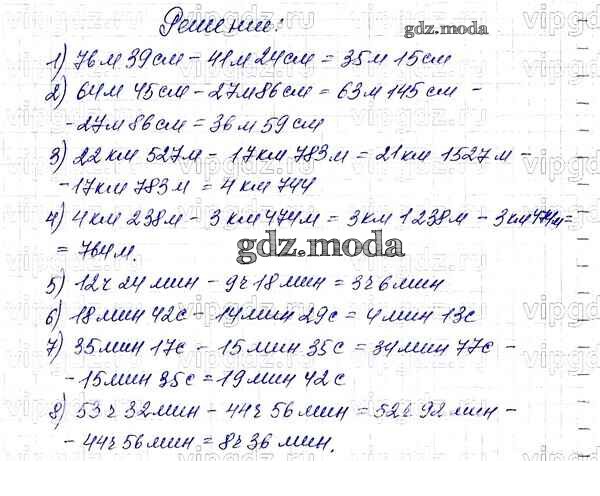 Решение:
gdz.moda
1) 76м 39см - 41м 24см = 35м 15см
2) 64м 45см - 27м 86см = 63м 145см -
- 27м 86см = 36м 59см
3) 22км 527м - 17км 783м = 21км 1527м -
- 17км 783м = 4км 744
4) 4км 238м - 3км 474м = 3км 1238м - 3км 474м =
= 764м.
gdz.moda
5) 12ч 24мин - 9ч 18мин = 3ч 6мин
6) 18мин 42с - 14мин 29с = 4мин 13с
7) 35мин 17с - 15мин 35с = 34мин 77с -
- 15мин 35с = 19мин 42с
8) 53ч 32мин - 44ч 56мин = 52ч 92мин -
- 44ч 56мин = 8ч 36мин.